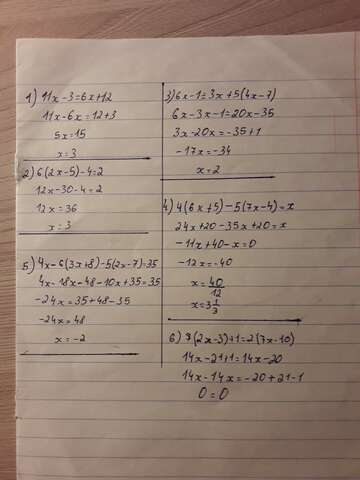 1) 11x-3=6x+12
11x-6x=12+3
5x=15
x=3
2) 6(2x-5)-4=2
12x-30-4=2
12x=36
x=3
5) 4x-6(3x+8)-5(2x-7)=35
4x-18x-48-10x+35=35
-24x=35+48-35
-24x=48
x=-2
3) 6x-1=3x+5(4x-7)
6x-3x-1=20x-35
3x-20x=-35+1
-17x=-34
x=2
4) 4(6x+5)-5(7x-4)=x
24x+20-35x+20=x
-11x+40-x=0
-12x=-40
x=40/12
x=3 1/3
6) 7(2x-3)+1=2(7x-10)
14x-21+1=14x-20
14x-14x=-20+21-1
0=0